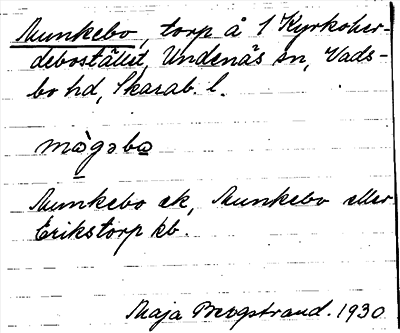 Munkebo, torp å 1 Kyrkoher-
debostället, Undenäs sn, Vads-
bo hd, Skarab. l.
mằgəba
Munkebo ek, Munkebo eller
Erikstorp kb.
Maja Bergstrand. 1930